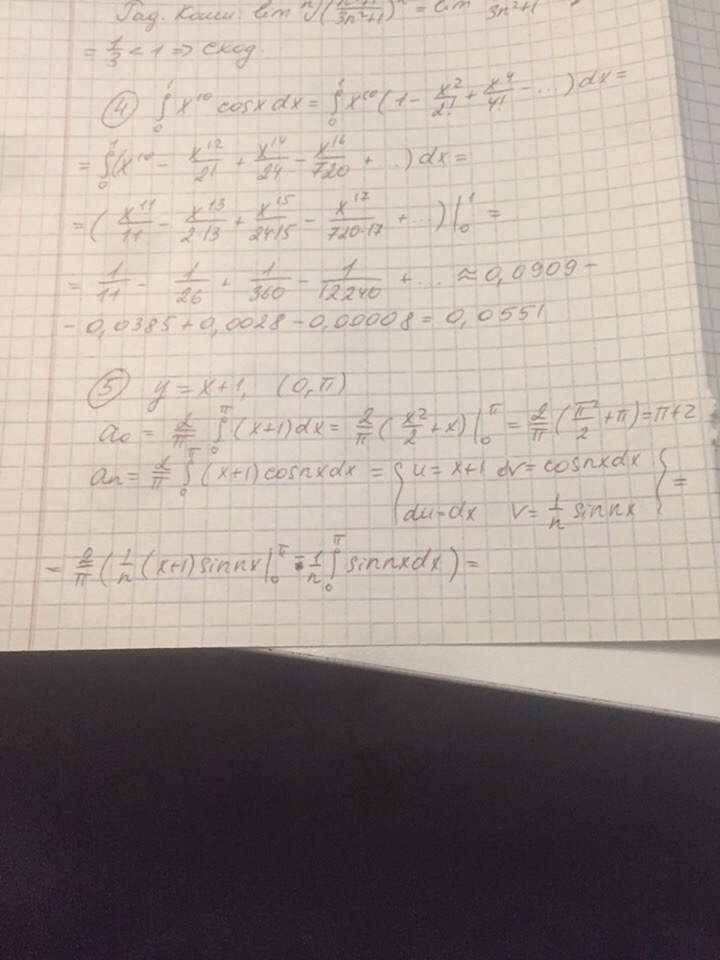 Рад. Коши: lim ⁿ√((   /3n²+1)ⁿ) = lim    /3n²+1
= 1/3 < 1 => сход.
④ ∫₀¹ x¹⁰ cosx dx = ∫₀¹ x¹⁰ (1 - x²/2! + x⁴/4! - ...) dx =
= ∫₀¹ (x¹⁰ - x¹²/2! + x¹⁴/24 - x¹⁶/720 + ...) dx =
= (x¹¹/11 - x¹³/2·13 + x¹⁵/24·15 - x¹⁷/720·17 + ...) |₀¹ =
= 1/11 - 1/26 + 1/360 - 1/12240 + ... ≈ 0,0909 -
- 0,0385 + 0,0028 - 0,00008 = 0,0551
⑤ y = x+1, (0, π)
a₀ = 2/π ∫₀^π (x+1) dx = 2/π (x²/2 + x) |₀^π = 2/π (π²/2 + π) = π+2
aₙ = 2/π ∫₀^π (x+1) cosnx dx = { u = x+1 dv = cosnx dx
du = dx v = 1/n sinnx } =
= 2/π (1/n (x+1) sinnx |₀^π - 1/n ∫₀^π sinnx dx) =